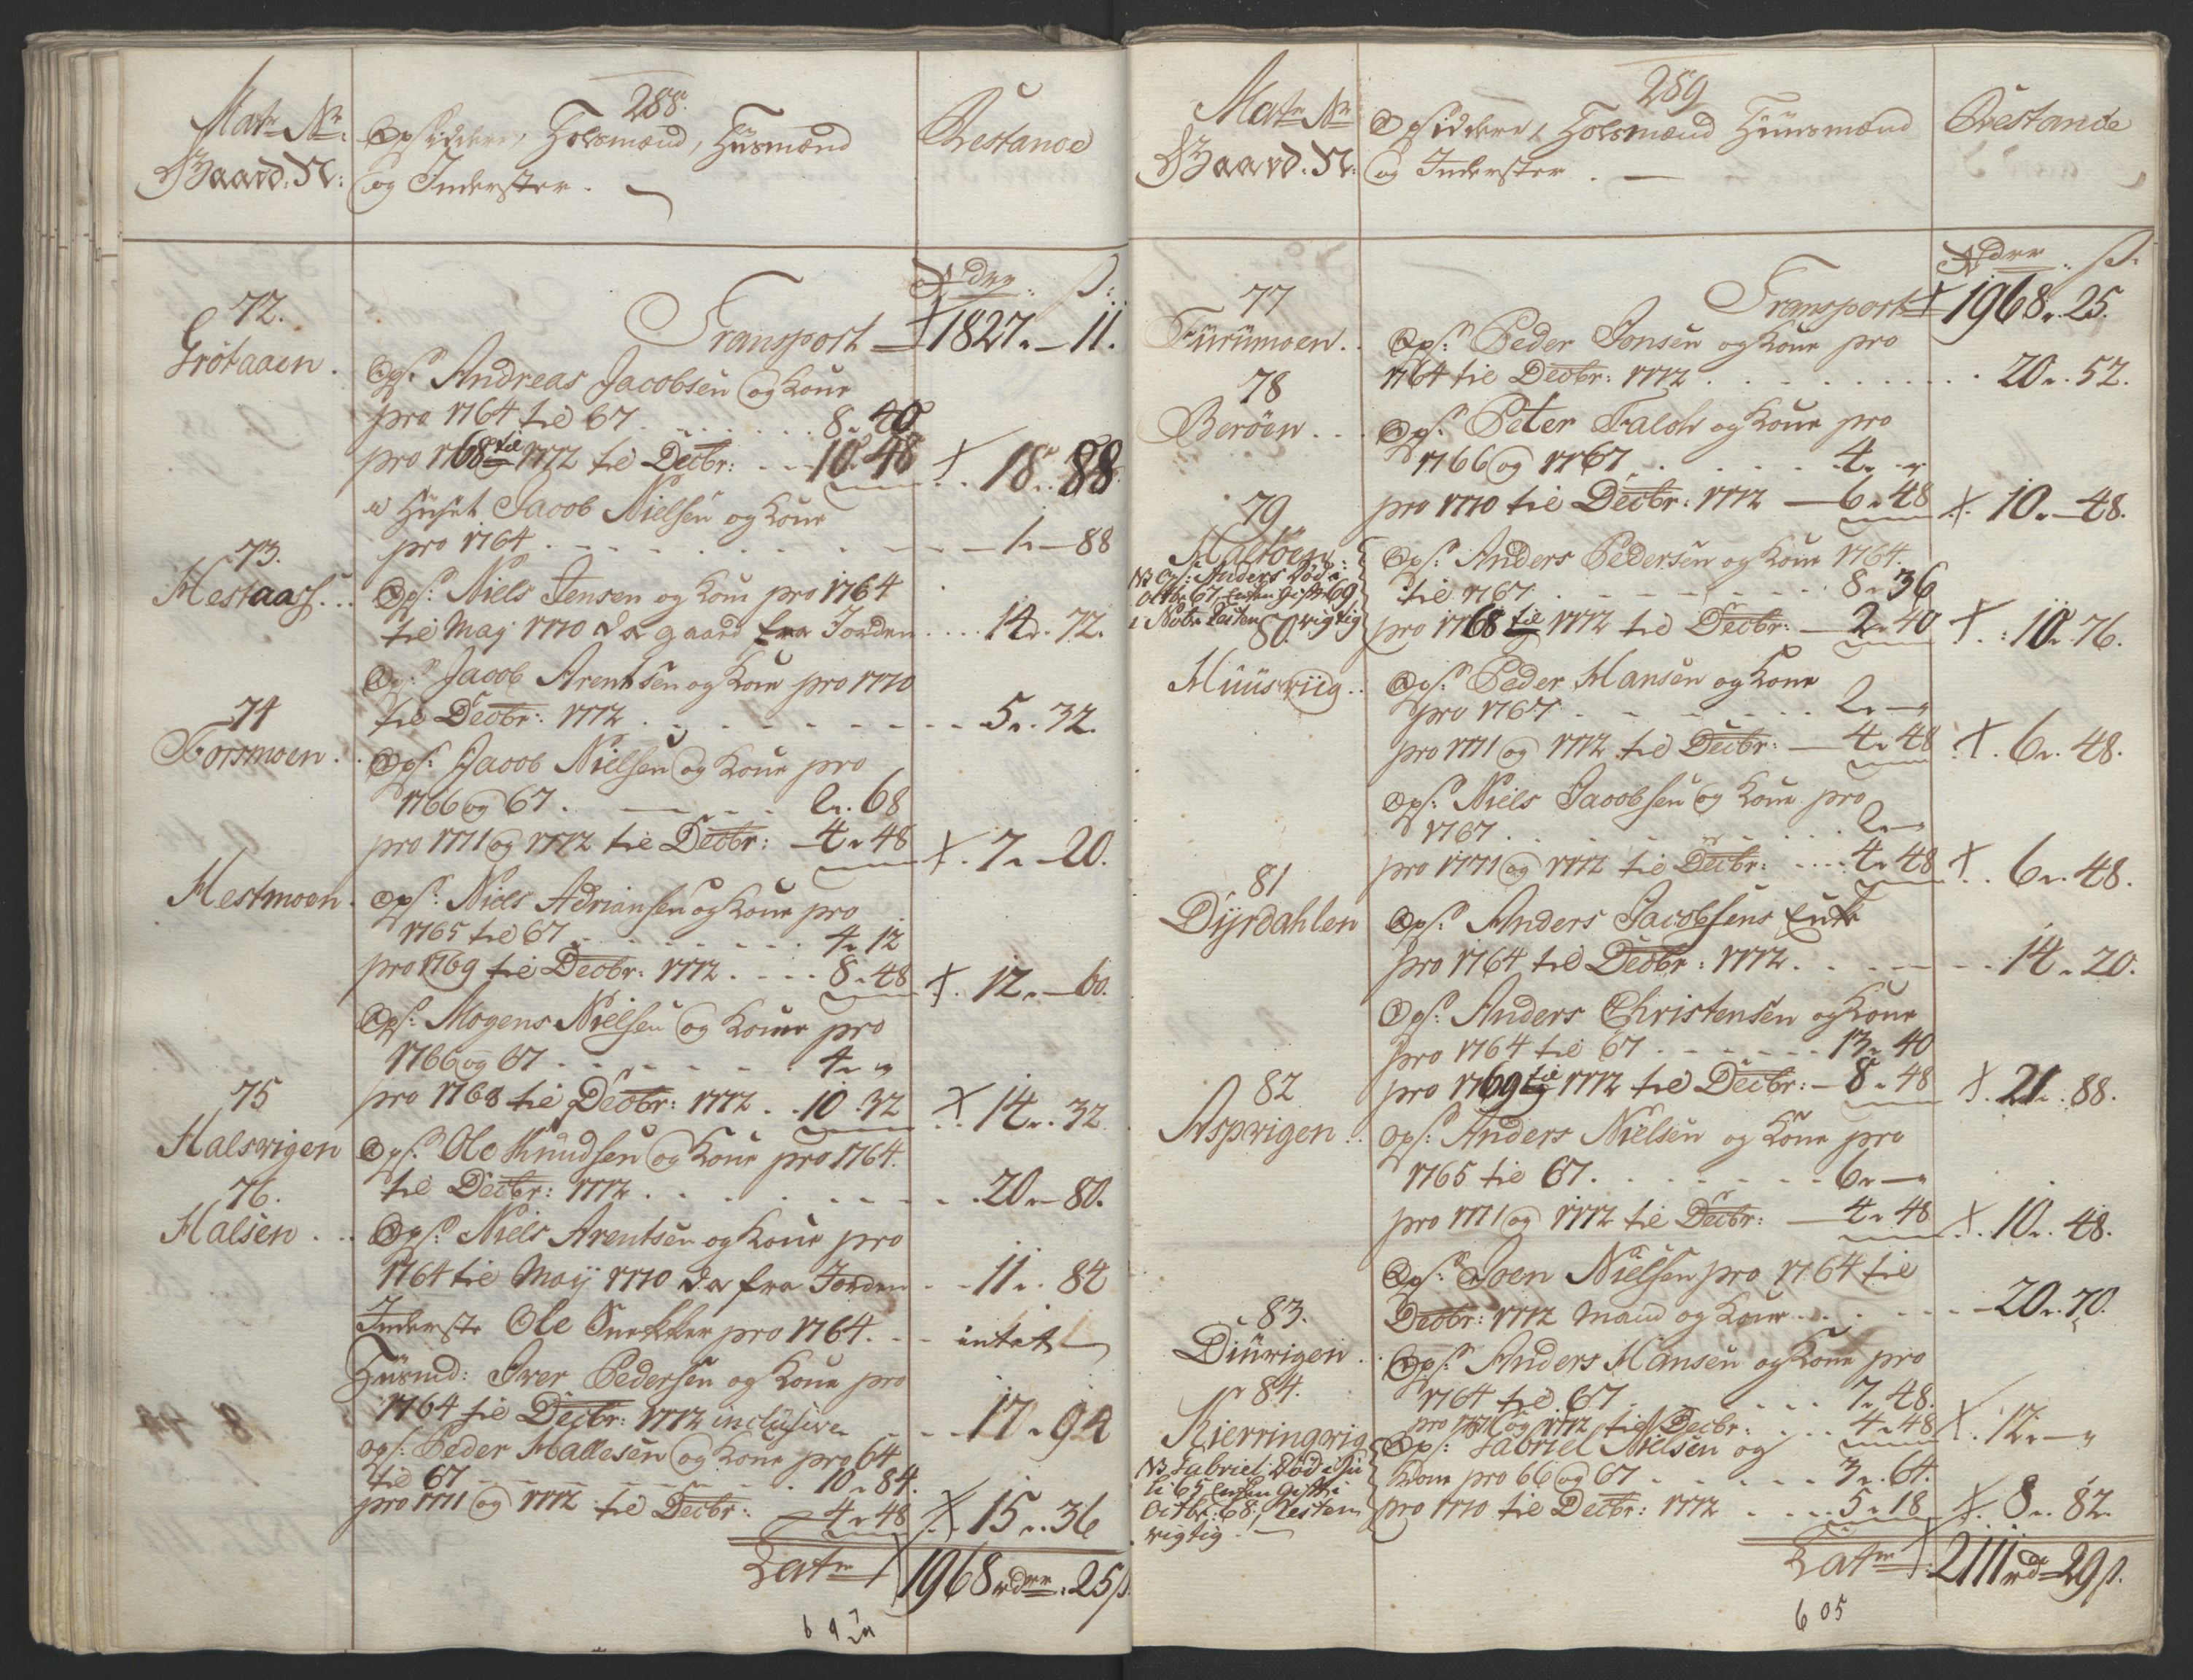 288.
Matr Nr.
Gaard: N:
Opsiddere, Folsmænd, Huusmænd
og Inderster.
Restance
Rdr: ß:
Transport 1827. 11.
72.
Grötaaen.
Ops: Andreas Jacobsen og Kone
pro 1764 til 67 8. 40
pro 1768 til 1772 til Decbr: 10. 48 18. 88
Jacob Nielsen og Kone
pro 1764 1. 88
73.
Hestaas.
Ops: Niels Jensen og Kone pro 1764
til Maj 1770 da gaard fra Jorden 14. 72.
Ops: Jacob Arentsen og Kone pro 1770
til Decbr: 1772 5. 32.
74
Forsmoen.
Ops: Jacob Nielsen og Kone pro
1766 og 67. 2. 68
pro 1771 og 1772 til Decbr: 4. 48 7. 20.
Hestmoen.
Ops: Niels Adriansen og Kone pro
1765 til 67 4. 12
pro 1769 til Decbr: 1772 8. 48 12. 60.
Ops: Mogens Nielsen og Kone pro
1766 og 67 4. "
pro 1768 til Decbr: 1772 10. 32 14. 32
75
Halsvigen
Ops: Ole Knudsen og Kone pro 1764.
til Decbr: 1772 20. 80.
76.
Halsen
Ops: Niels Arentsen og Kone pro
1764 til Maij 1770 da fra Jorden 11. 84
Inderste Ole Snekker pro 1764. intet
Huusmd: Iver Pedersen og Kone pro
1764 til Decbr: 1772 inclusive 17. 94
Ops: Peder Hallesen og Kone pro 64
til 67 10. 84.
pro 1771 og 1772 til Decbr: 4. 48 15. 36
Latr 1968 rdr: 25 ß.
289
Matr Nr
Gaard. N:
Opsiddere, Folsmænd Huusmænd
og Inderster.
Restance
Rdr: ß:
Transport 1968. 25.
77
Furumoen.
Ops: Peder Jonsen og Kone pro
1764 til Decbr: 1772 20. 52.
78
Beröen
Ops: Peter Falch og Kone pro
1766 og 1767 4. "
pro 1770 til Decbr: 1772 6. 48 10. 48.
79
Haltöen:
NB Ops: Anders Död i
Octbr 67, Enken gift 69
i Novbr Resten rigtig
Ops: Anders Pedersen og Kone 1764.
til 1767 8. 36
pro 1768 til 1772 til Decbr: 2. 40 10. 76.
80.
Huusviig.
Ops: Peder Hansen og Kone
pro 1767 2. "
pro 1771 og 1772 til Decbr: 4. 48 6. 48.
Ops: Niels Jacobsen og Kone pro
1767 2. "
pro 1771 og 1772 til Decbr: 4. 48 6. 48.
81
Dyrdahlen
Ops: Anders Jacobsens Enke
pro 1764 til Decbr: 1772. 14. 20.
Ops: Anders Christensen og Kone
pro 1764 til 67 13. 40
pro 1769 til 1772 til Decbr: 8. 48 21. 88.
82
Aspvigen
Ops: Anders Nielsen og Kone pro
1765 til 67. 6. "
pro 1771 og 1772 til Decbr: 4. 48 10. 48.
Ops: Joen Nielsen pro 1764 til
Decbr: 1772 Mand og Kone 20. 70.
83.
Diürigen
Ops: Anders Hansen og Kone pro
1764 til 67 7. 48.
pro 1771 og 1772 til Decbr: 4. 48 12. "
84.
Kierringvig
NB Gabriel Död i
67, Enken gift i
Octbr: 68: Resten
rigtig.
Ops: Gabriel Nielsen og
Kone pro 66 og 67 3. 64.
pro 1770 til Decbr: 1772 5. 18 8. 82.
Latr 2111 rd 29 ß.
605